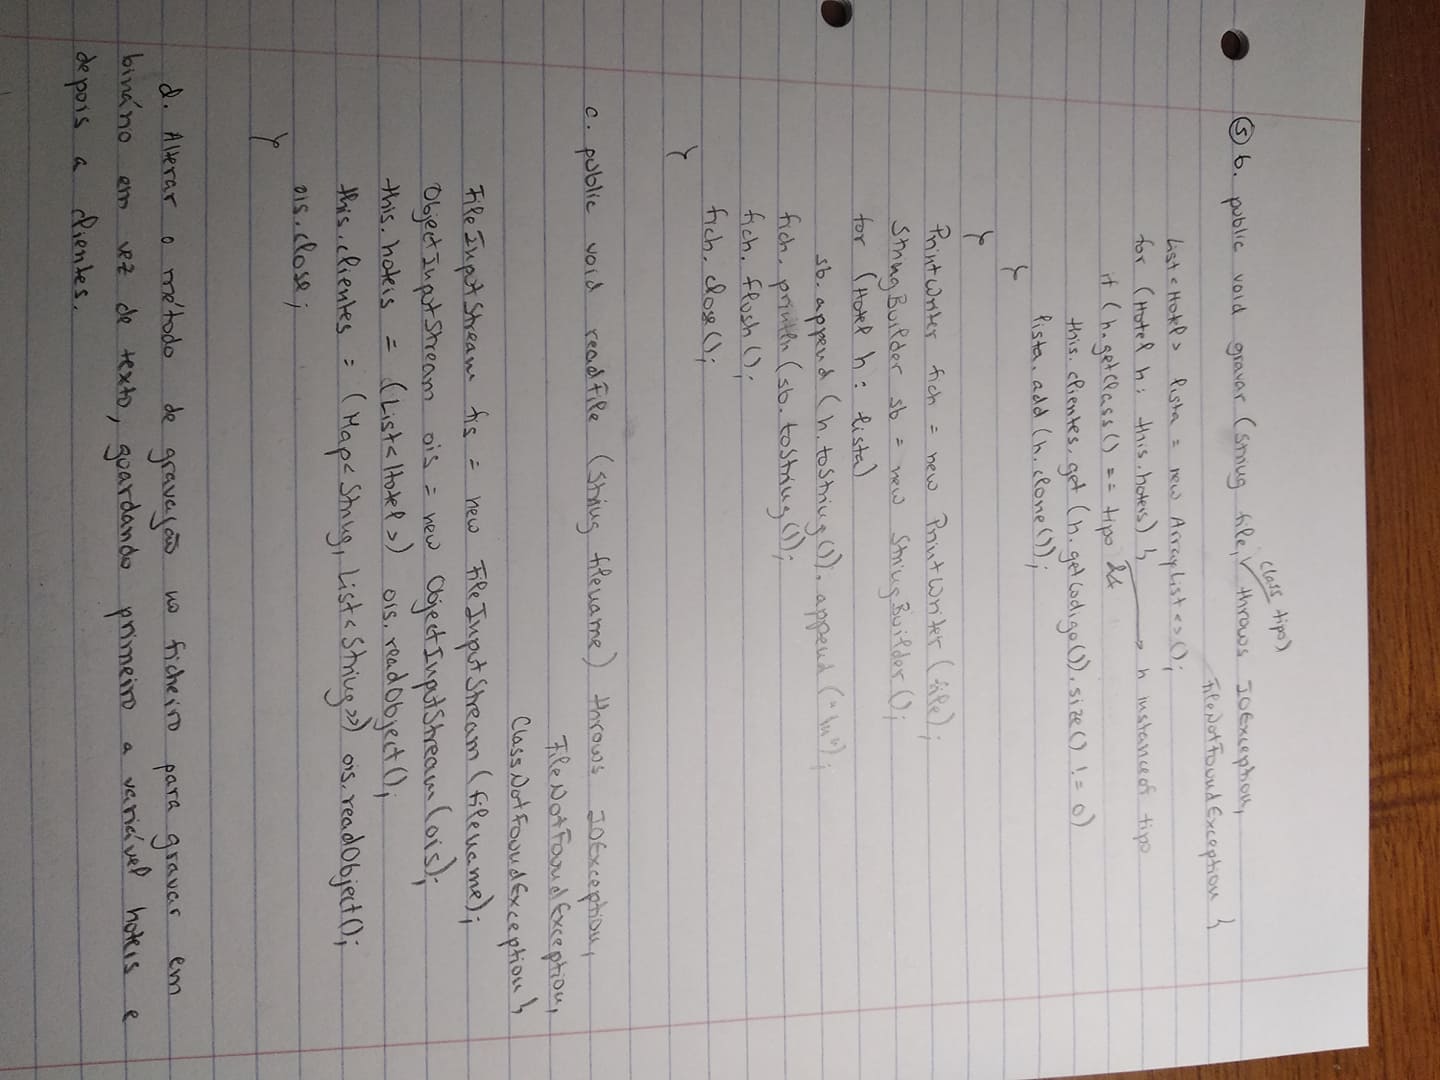 class tipo)
⑤ b. public void gravar (String file, throws IOException,
FileNotFoundException {
List<Hotel> lista = new ArrayList<>();
for (Hotel h: this.hoteis) { → h instanceof tipo
if (h.getClass() == tipo &&
this.clientes.get(h.getCodigo()).size() != 0)
lista.add(h.clone());
}
}
PrintWriter fich = new PrintWriter(file);
StringBuilder sb = new StringBuilder();
for (Hotel h: lista)
sb.append(h.toString()).append("\n");
fich.println(sb.toString());
fich.flush();
fich.close();
}
c. public void readFile (String filename) throws IOException,
FileNotFoundException,
ClassNotFoundException {
FileInputStream fis = new FileInputStream(filename);
ObjectInputStream ois = new ObjectInputStream(ois);
this.hoteis = (List<Hotel>) ois.readObject();
this.clientes = (Map<String, List<String>>) ois.readObject();
ois.close;
}
d. Alterar o método de gravação no ficheiro para gravar em
binário em vez de texto, guardando primeiro a variável hoteis e
depois a clientes.